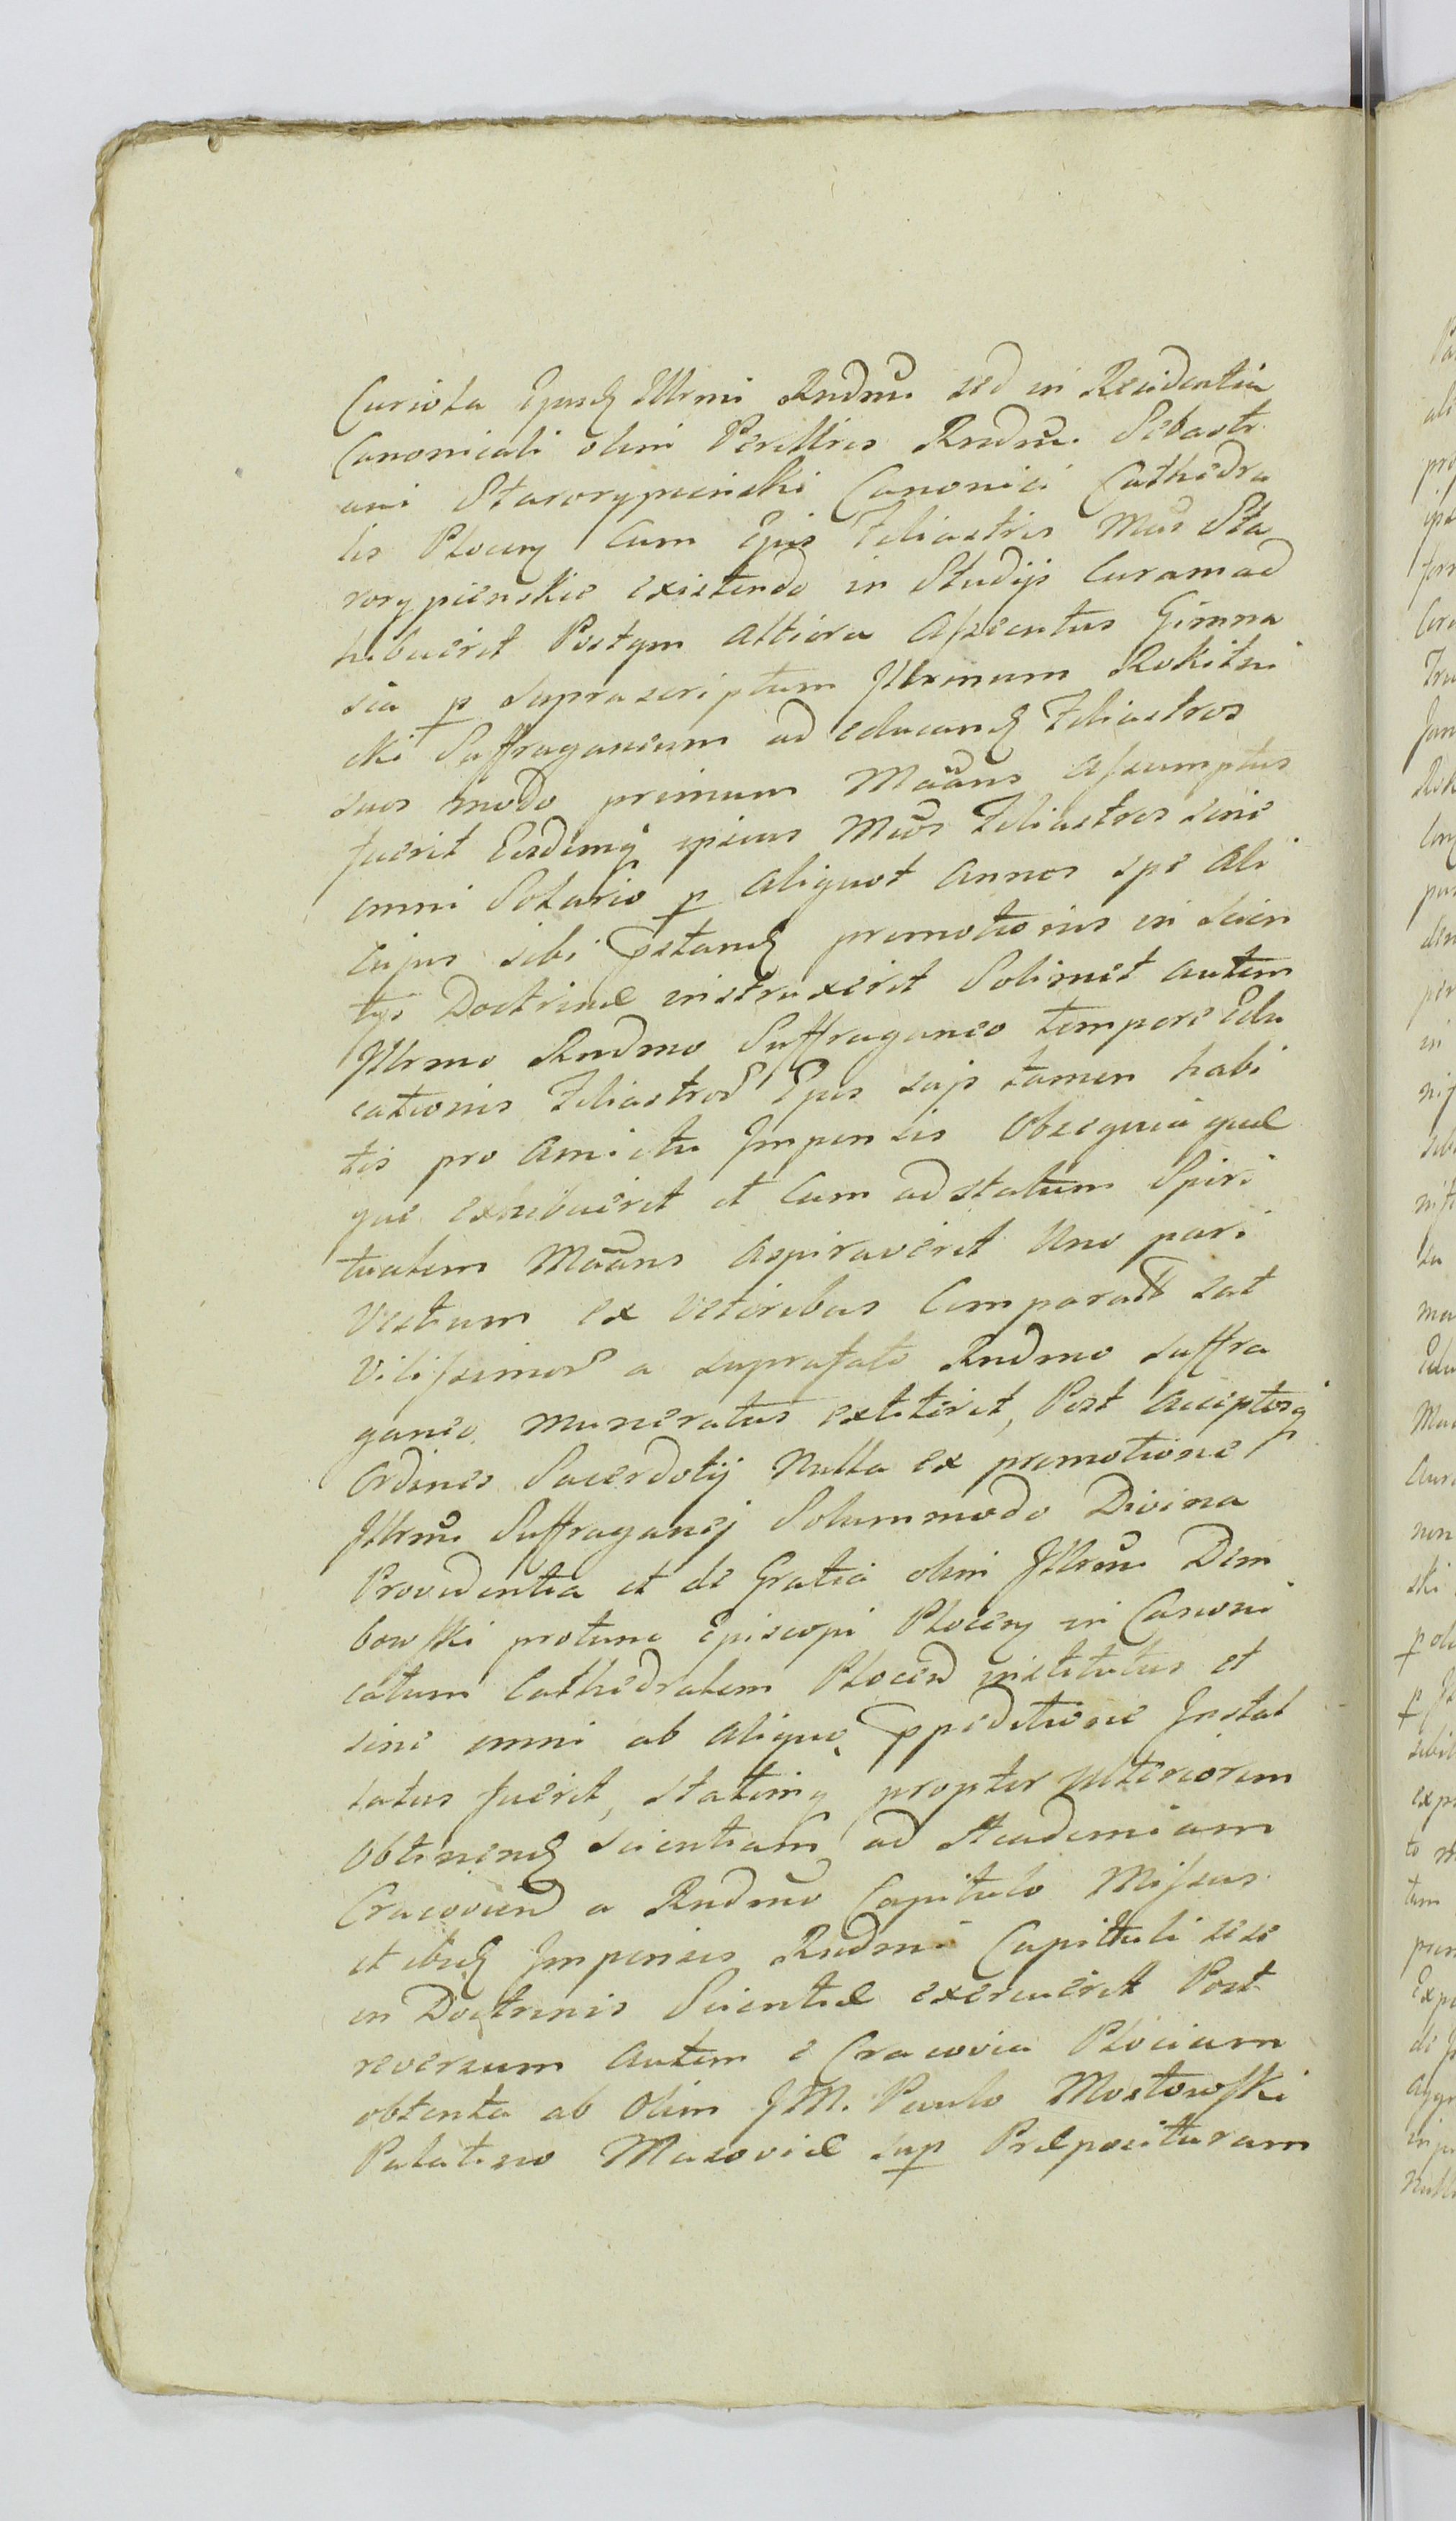 Curiola Ejusd Illrmi Rndmi sed in Residentia
Canonicali olim Perillris Rndmi Sebasti
ani Starorypienski Canonici Cathedra
lis Plocen cum Ejus Filiastris Mcis Sta
rorypienskie existendo in Studijs Curam ad
hibuerit Postqm altiora assecutus Gimna
sia p suprascriptum Illrmum Rokitni
cki Suffraganeum ad educand Filiastros
suos modo primum Maans assumptus
fuerit Eosdemq ipsius Mcos Filiastros sine
omni Solario p aliquot annos spe ali
cujus sibi pstand promotionis in Scien
tys Doctrinæ instruxerit Solimet autem
Illrmo Rndmo Suffraganeo tempore Edu
cationis Filiastror Ejus sujs tamen habi
tis pro amictu Impensis Obsequia quæ
que exhibuerit et cum ad statum Spiri
tualem Maans aspiraverit Uno pari
Vestium ex veteribus Comparatt sat
Vilissimor a suprafato Rndmo suffra
ganeo muneratus extiterit, Post acceptosq
Ordines Sacerdotij Nulla ex promotione
Illrmi Suffraganej Solummodo Divina
Providentia et de Gratia olim Illrmi Dem
bowski protunc Episcopi Plocen in Canoni
catum Cathedralem Plocen institutus et
sine omni ab aliquo ppeditione Instal
latus fuerit, statimq propter ulteriorem
obtinend scientiam ad Academiam
Cracovien a Rndmo Capitulo Missus
et ibid Impensis Rndmi Capituli sese
in Doctrinis Scientiæ exercuerit Post
reversum autem e Cracovia Plociam
obtenta ab Olim JM. Paulo Mostowski
Palatino Masoviæ sup Præposituram